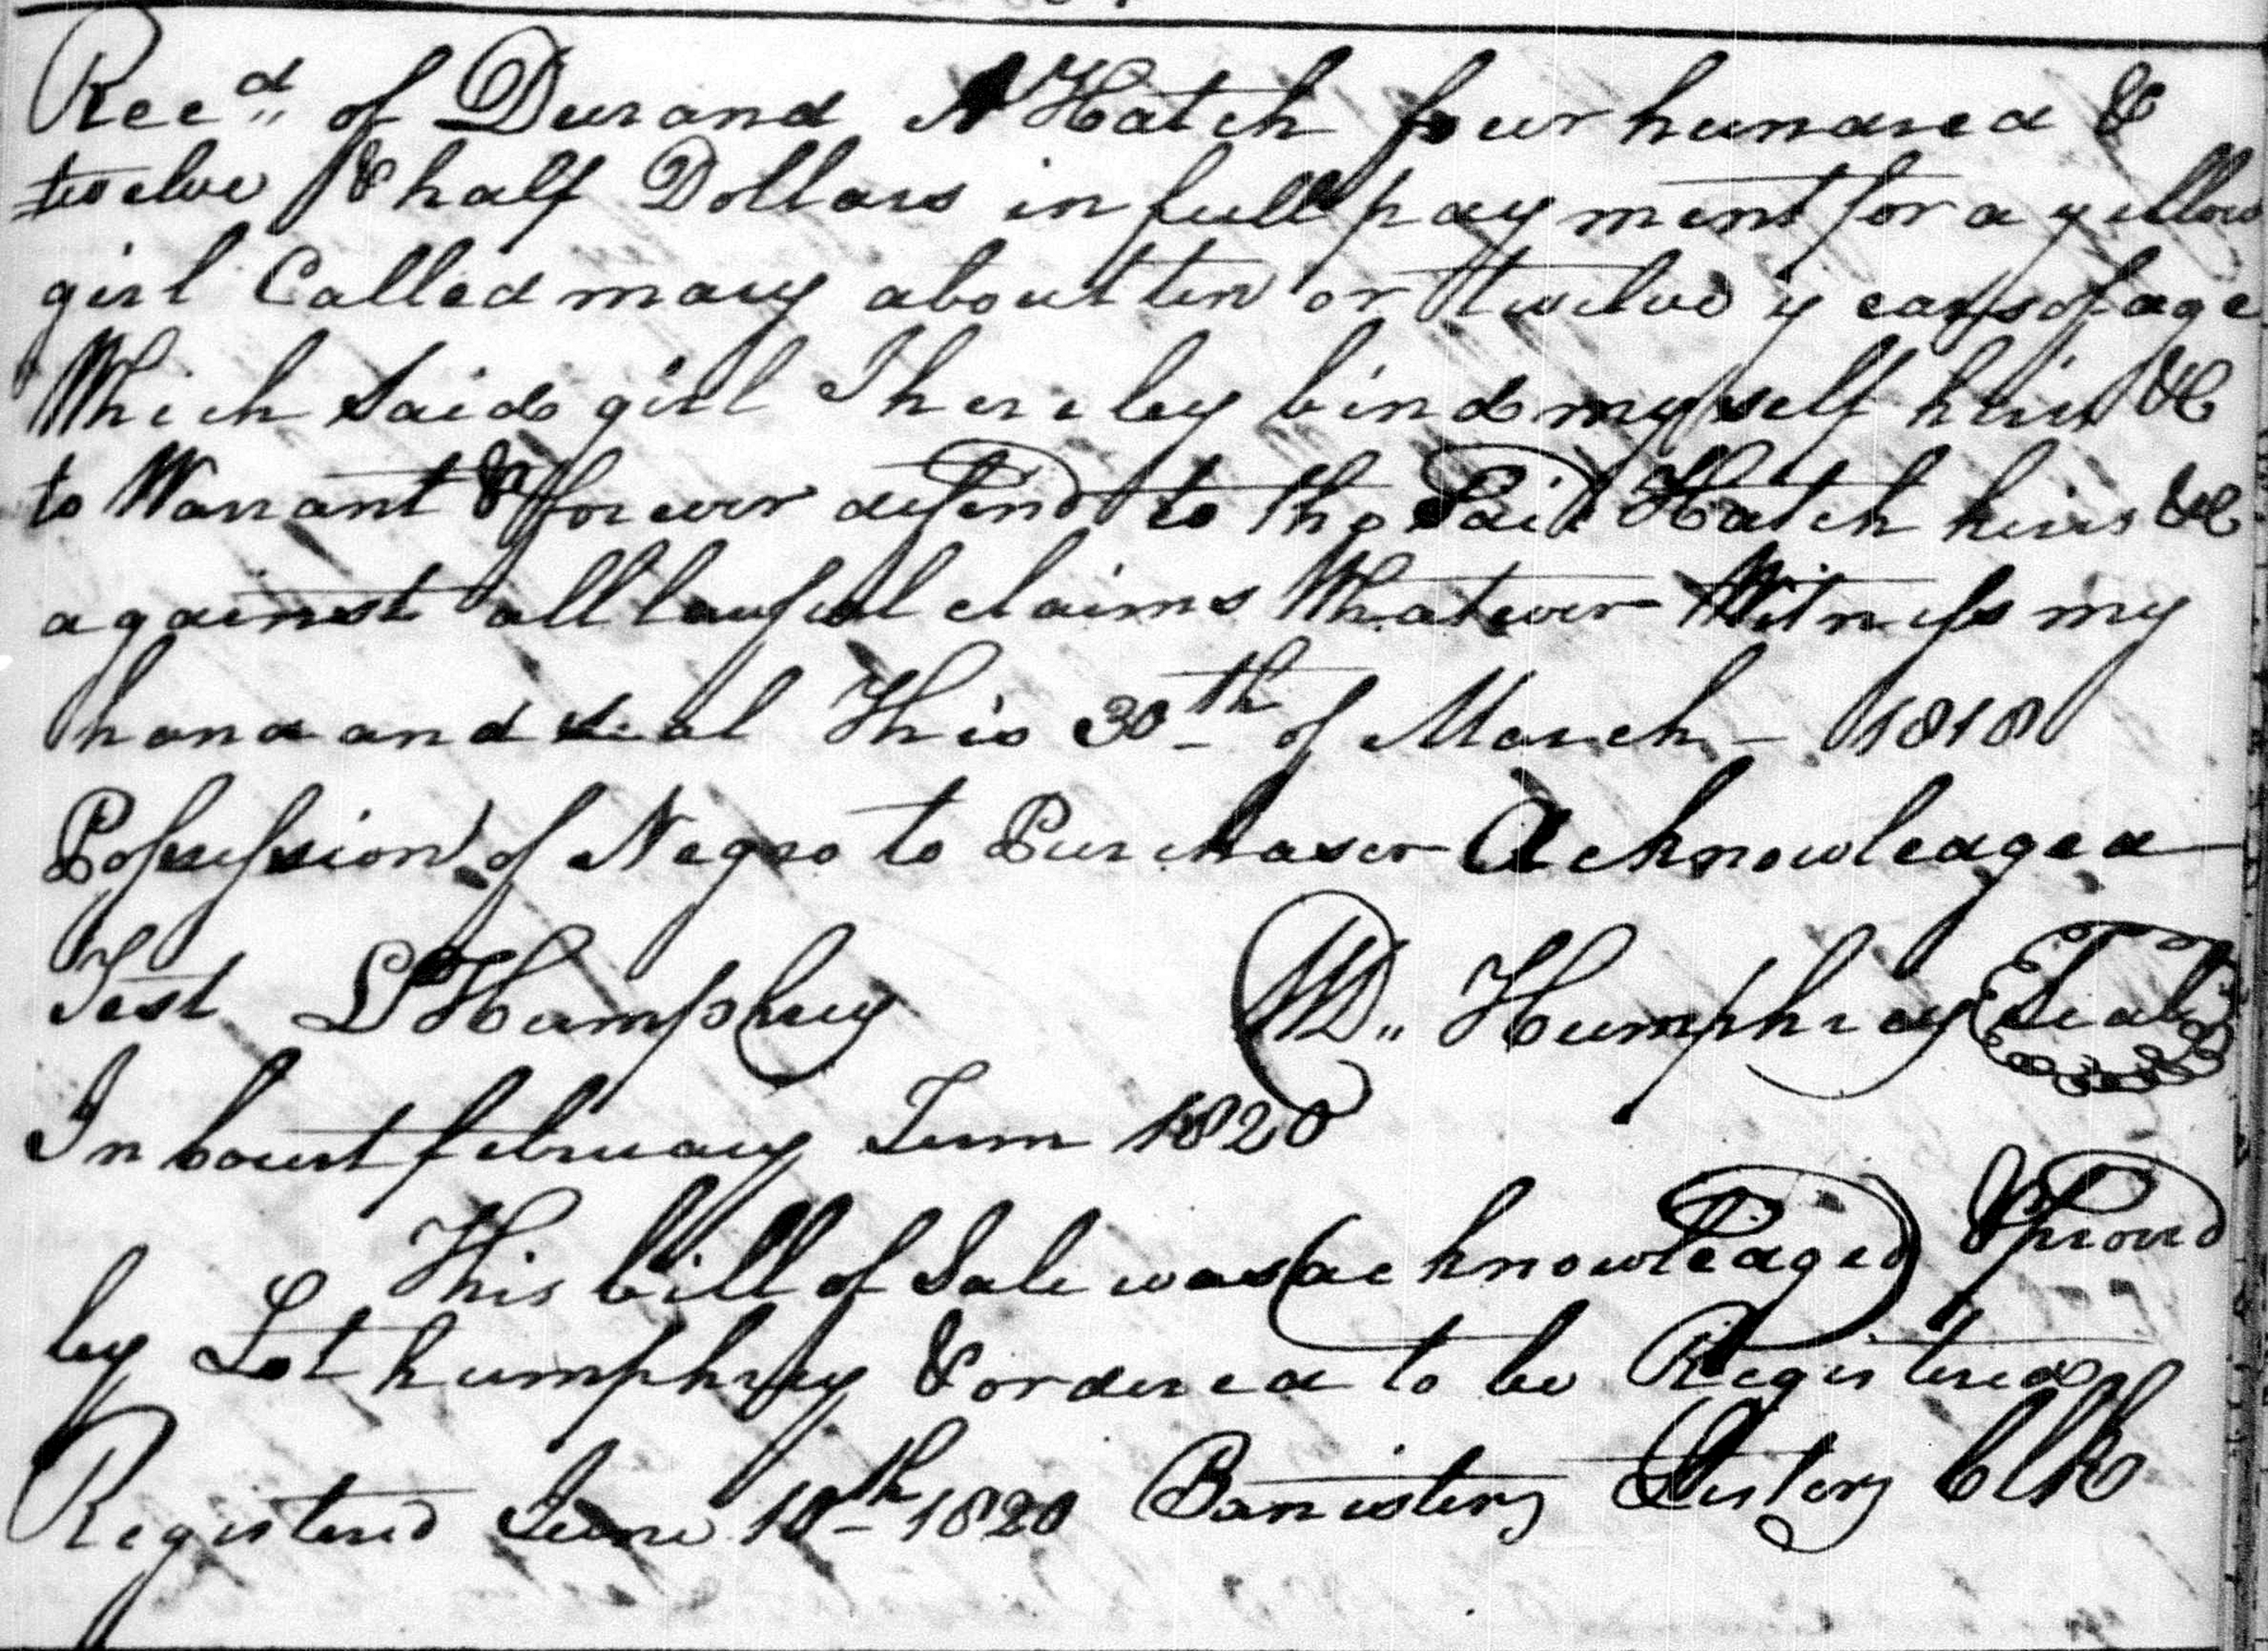 Recd of Durand A Hatch four hundred &
twelve & half Dollars in full payment for a yellow
girl Called mary about ten or twelve years of age
Which Said girl I hereby bind myself heirs &C
to Warrant & forever defend to the Said Hatch heirs &C
against all lawful claims Whatever Witness my
hand and seal This 30th of March - 1818
Possession of Negro to Purchaser Acknowledged
Test L Humphrey W Humphray Seal
In Court february Term 1820
This bill of Sale was acknowledged & proved
by Lot humphrey & ordered to be Registered
Registered June 10th 1820 Banister Lester Clk